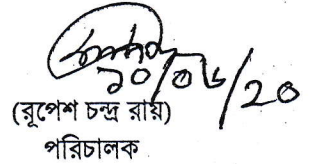 ১০/০৬/২০
(রূপেশ চন্দ্র রায়)
পরিচালক